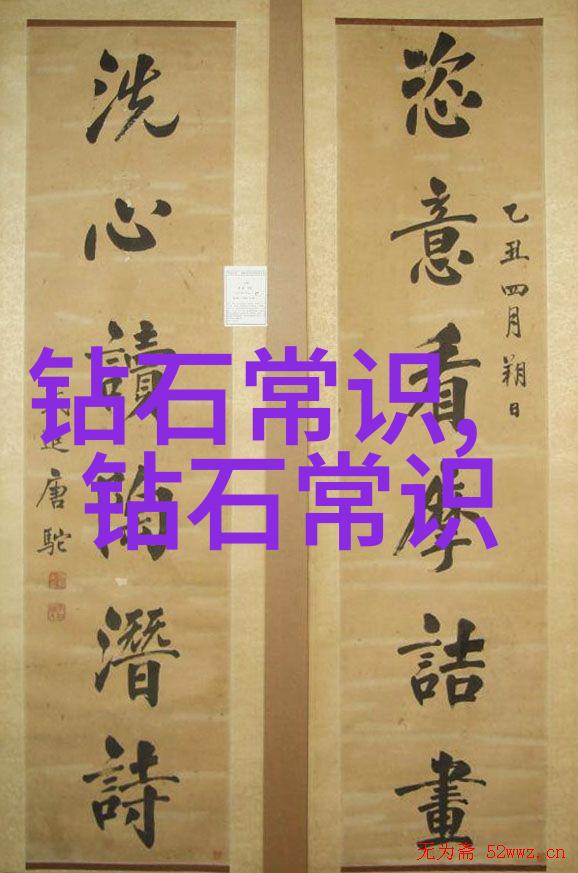 恣意看摩詰畫
乙丑四月朔日
洗心讀陶潛詩
進唐駝
钻石常识,
钻石常识
无为斋 52wwz.cn